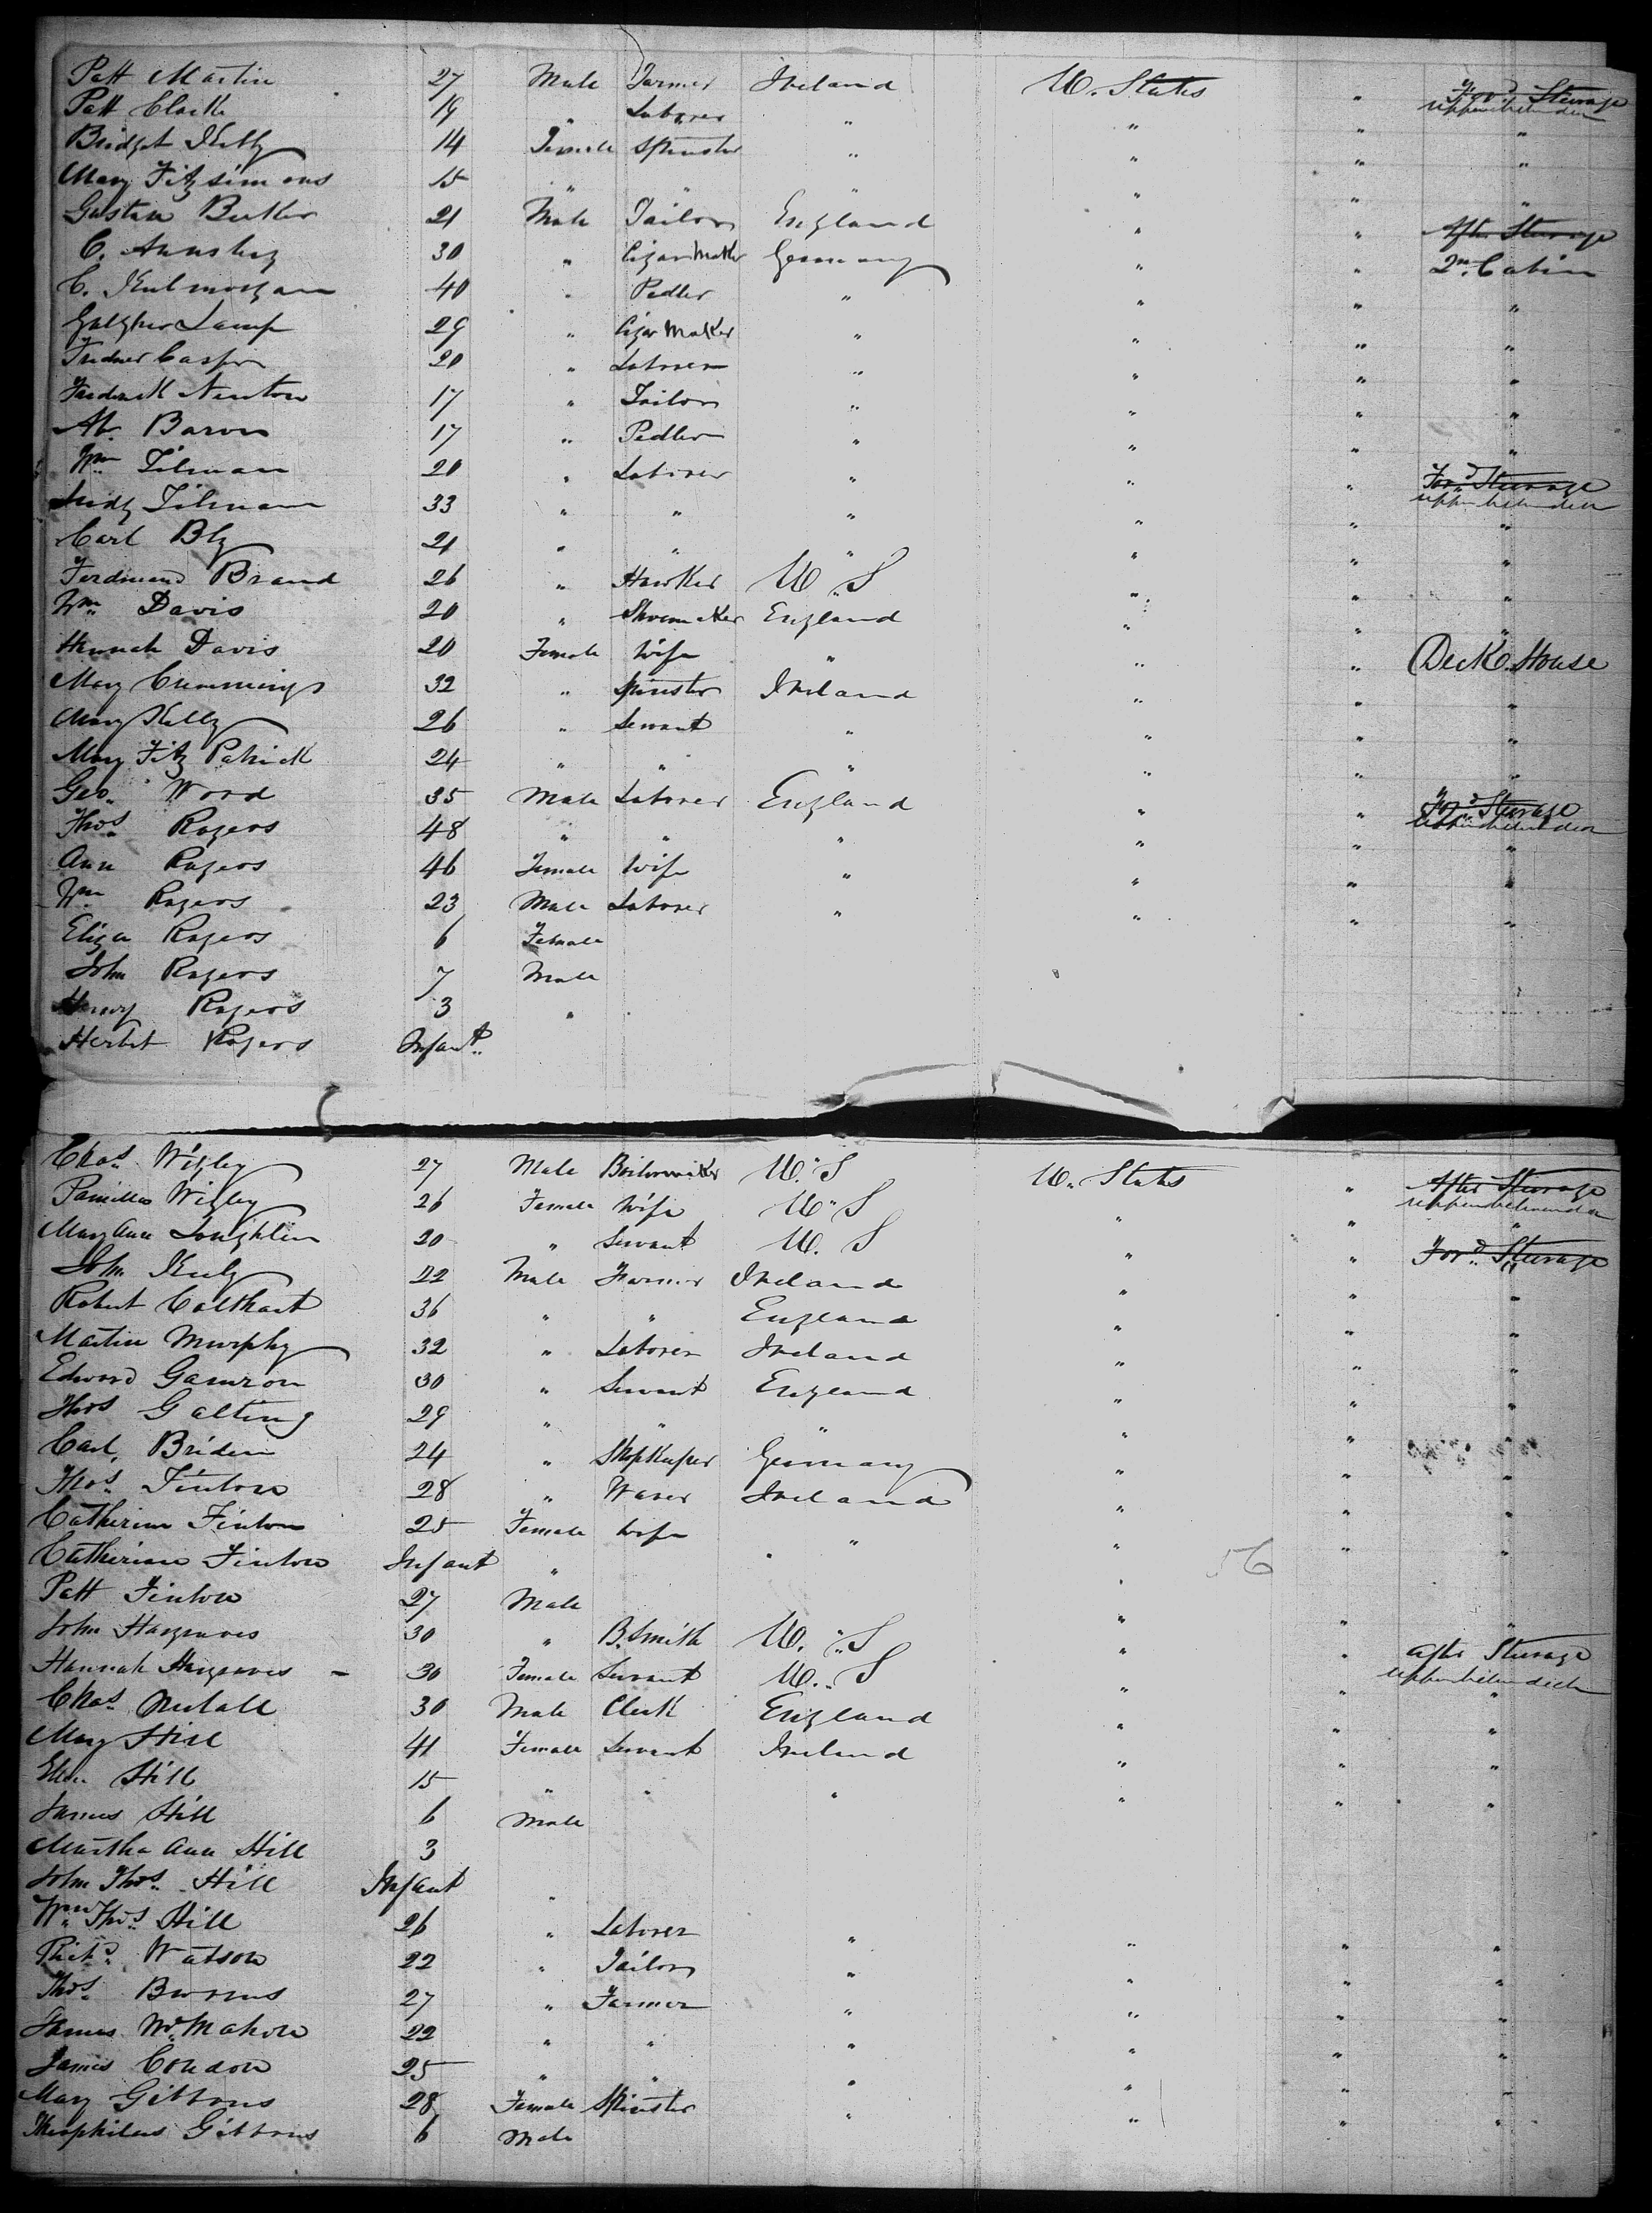 Patt Martin 27 Male Farmer Ireland U. States " For.d Steerage
upper between deck
Patt Clark 19 " Laborer " " " "
Bridget Kelly 14 Female Spinster " " " "
Mary Fitzsimons 15 " " " " " "
Gustav Butler 21 Male Tailor England " " Aftr. Steerage
C. 30 " Cigar Maker Germany " " 2nd. Cabin
C. 40 " Pedler " " " "
Lamp 29 " Cigar Maker " " " "
Casper 20 " Laborer " " " "
Frederick Newton 17 " Tailor " " " "
Ab. Baron 17 " Pedler " " " "
Wm Tilman 20 " Laborer " " " For.d Steerage
upper between deck
Tilman 33 " " " " " "
Carl Bly 21 " " " " " "
Ferdinand Brand 26 " Hawker U.S " " "
Wm. Davis 20 " Shoemaker England " " "
Hannah Davis 20 Female Wife " " " Deck House
Mary Cummings 32 " Spinster Ireland " " "
Mary Kelly 26 " Servant " " " "
Mary Fitz Patrick 24 " " " " " "
Geo. Word 35 Male Laborer England " " For.d Steerage
upper between deck
Thos. Rogers 48 " " " " " "
Ann Rogers 46 Female Wife " " " "
Wm Rogers 23 Male Laborer " " " "
Eliza Rogers 6 Female
John Rogers 7 Male
Henry Rogers 3 "
Herbt Rogers Infant
Chas. Wigley 27 Male Boilermaker U.S U. States " After Steerage
upper between deck
Wigley 26 Female Wife U.S " " "
Mary Ann Loughlin 20 " Servant U.S " " For.d Steerage
John 22 Male Farmer Ireland " " "
Robert Calthart 36 " " England " " "
Martin Murphy 32 " Laborer Ireland " " "
Edward 30 " Servant England " " "
Thos Galting 29 " " " " " "
Carl. Briden 24 " Shopkeeper Germany " " "
Thos. Finton 28 " Waver Ireland " " "
Catherine Finton 25 Female Wife " " " "
Catherine Finton Infant " " " 56
Patt Finton 27 Male " " "
John Hargraves 30 " B. Smith U.S " " Aftr Steerage
upper between deck
Hannah Hargraves - 30 Female Servant U.S " " "
Chas. Nutall 30 Male Clerk England " " "
Mary Hill 41 Female Servant Ireland " " "
Ellen Hill 15 " " " " " "
James Hill 6 Male
Martha Ann Hill 3
John Thos. Hill Infant "
Wm. Thos. Hill 26 " Laborer " " " "
Richd. Watson 22 " Tailor " " " "
Thos. 27 " Farmer " " " "
James McMahon 22 " " " " " "
James Condon 25 " " " " " "
Mary Gibbons 28 Female Spinster " " " "
Theophilus Gibbons 6 Male